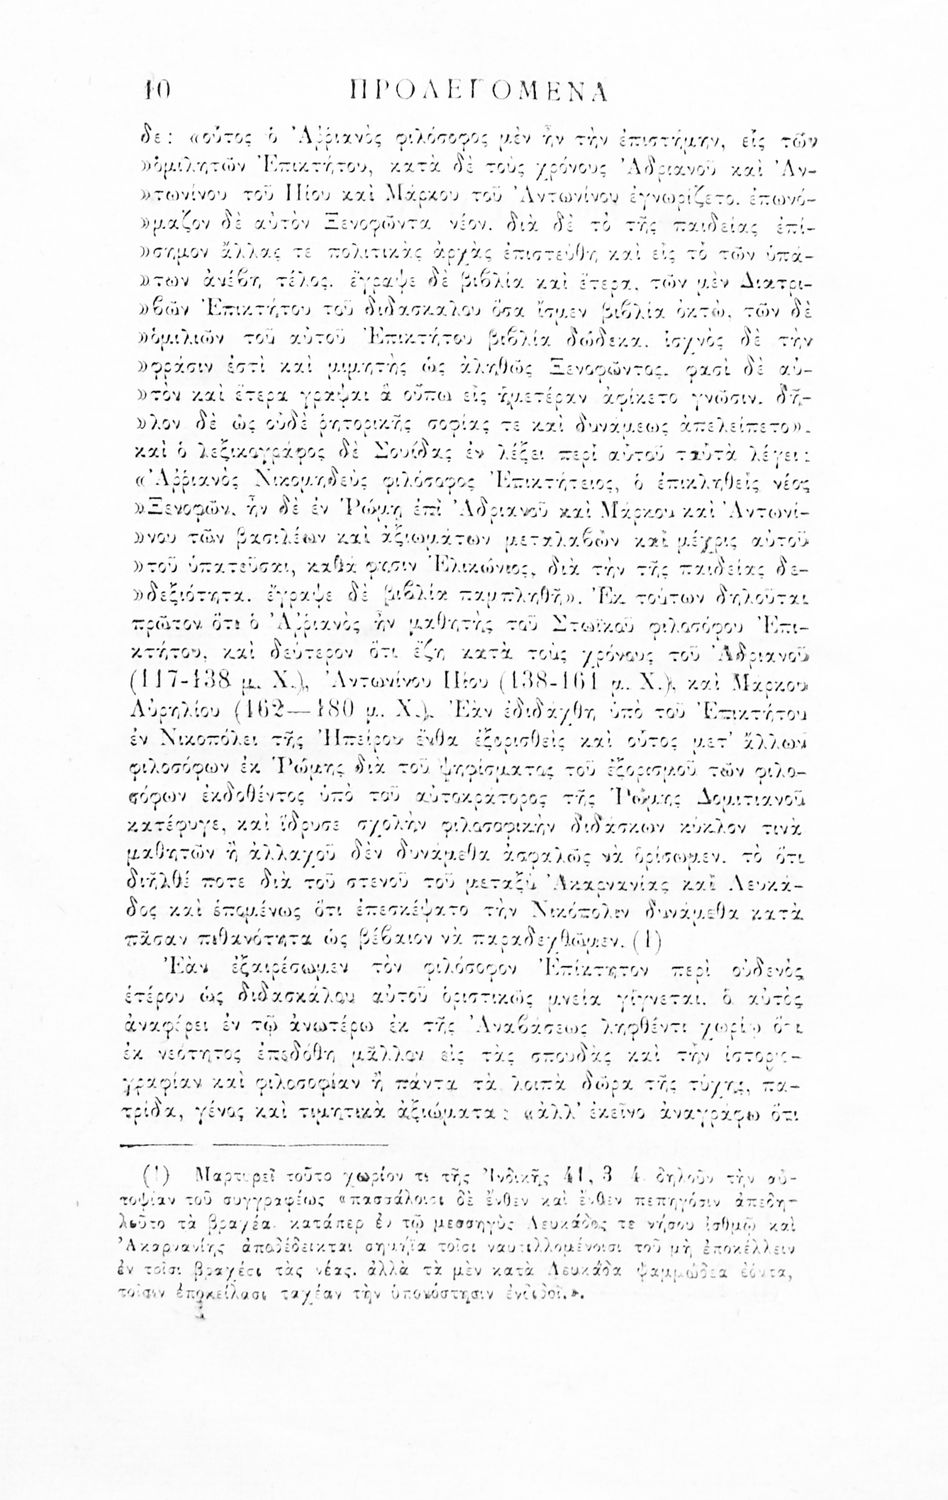 10 ΠΡΟΛΕΓΟΜΕΝΑ
δε: «οὗτος ὁ Ἀῤῥιανὸς φιλόσοφος μὲν ἦν τὴν ἐπιστήμην, εἷς τῶν
»ὁμιλητῶν Ἐπικτήτου, κατὰ δὲ τοὺς χρόνους Ἀδριανοῦ καὶ Ἀν-
»τωνίνου τοῦ Πίου καὶ Μάρκου τοῦ Ἀντωνίνου ἐγνωρίζετο. ἐπωνό-
»μαζον δὲ αὐτὸν Ξενοφῶντα νέον. διὰ δὲ τὸ τῆς παιδείας ἐπί-
»σημον ἄλλας τε πολιτικὰς ἀρχὰς ἐπιστεύθη καὶ εἰς τὸ τῶν ὑπά-
»των ἀνέβη τέλος. ἔγραψε δὲ βιβλία καὶ ἕτερα. τῶν μὲν Διατρι-
»βῶν Ἐπικτήτου τοῦ διδασκάλου ὅσα ἴσμεν βιβλία ὀκτώ. τῶν δὲ
»ὁμιλιῶν τοῦ αὐτοῦ Ἐπικτήτου βιβλία δώδεκα. ἰσχνὸς δὲ τὴν
»φράσιν ἐστὶ καὶ μιμητὴς ὡς ἀληθῶς Ξενοφῶντος. φασὶ δὲ αὐ-
»τὸν καὶ ἕτερα γράψαι ἃ οὔπω εἰς ἡμετέραν ἀφίκετο γνῶσιν. δῆ-
»λον δὲ ὡς οὐδὲ ῥητορικῆς σοφίας τε καὶ δυνάμεως ἀπελείπετο».
καὶ ὁ λεξικογράφος δὲ Σουίδας ἐν λέξει περὶ αὐτοῦ ταῦτα λέγει:
«Ἀῤῥιανὸς Νικομηδεὺς φιλόσοφος Ἐπικτήτειος, ὁ ἐπικληθεὶς νέος
»Ξενοφῶν. ἦν δὲ ἐν Ῥώμῃ ἐπὶ Ἀδριανοῦ καὶ Μάρκου καὶ Ἀντωνί-
»νου τῶν βασιλέων καὶ ἀξιωμάτων μεταλαβὼν καὶ μέχρις αὐτοῦ
»τοῦ ὑπατεῦσαι, καθά φησιν Ἑλικώνιος, διὰ τὴν τῆς παιδείας δε-
»δεξιότητα. ἔγραψε δὲ βιβλία παμπληθῆ». Ἐκ τούτων δηλοῦται
πρῶτον ὅτι ὁ Ἀῤῥιανὸς ἦν μαθητὴς τοῦ Στωϊκοῦ φιλοσόφου Ἐπι-
κτήτου, καὶ δεύτερον ὅτι ἔζη κατὰ τοὺς χρόνους τοῦ Ἀδριανοῦ
(117-138 μ. Χ.), Ἀντωνίνου Πίου (138-161 μ. Χ.), καὶ Μάρκου
Αὐρηλίου (162—180 μ. Χ.). Ἐὰν ἐδιδάχθη ὑπὸ τοῦ Ἐπικτήτου
ἐν Νικοπόλει τῆς Ἠπείρου ἔνθα ἐξορισθεὶς καὶ οὗτος μετ' ἄλλων
φιλοσόφων ἐκ Ῥώμης διὰ τοῦ ψηφίσματος τοῦ ἐξορισμοῦ τῶν φιλο-
σόφων ἐκδοθέντος ὑπὸ τοῦ αὐτοκράτορος τῆς Ῥώμης Δομιτιανοῦ
κατέφυγε, καὶ ἵδρυσε σχολὴν φιλοσοφικὴν διδάσκων κύκλον τινὰ
μαθητῶν ἢ ἀλλαχοῦ δὲν δυνάμεθα ἀσφαλῶς νὰ ὁρίσωμεν. τὸ ὅτι
διῆλθέ ποτε διὰ τοῦ στενοῦ τοῦ μεταξὺ Ἀκαρνανίας καὶ Λευκά-
δος καὶ ἑπομένως ὅτι ἐπεσκέψατο τὴν Νικόπολιν δυνάμεθα κατὰ
πᾶσαν πιθανότητα ὡς βέβαιον νὰ παραδεχθῶμεν. (1)
Ἐὰν ἐξαιρέσωμεν τὸν φιλόσοφον Ἐπίκτητον περὶ οὐδενὸς
ἑτέρου ὡς διδασκάλου αὐτοῦ ὁριστικῶς μνεία γίγνεται. ὁ αὐτὸς
ἀναφέρει ἐν τῷ ἀνωτέρω ἐκ τῆς Ἀναβάσεως ληφθέντι χωρίῳ ὅτι
ἐκ νεότητος ἐπεδόθη μᾶλλον εἰς τὰς σπουδὰς καὶ τὴν ἱστοριο-
γραφίαν καὶ φιλοσοφίαν ἢ πάντα τὰ λοιπὰ δῶρα τῆς τύχης, πα-
τρίδα, γένος καὶ τιμητικὰ ἀξιώματα: «ἀλλ' ἐκεῖνο ἀναγράφω ὅτι
(1) Μαρτυρεῖ τοῦτο χωρίον τι τῆς Ἰνδικῆς 41, 3 4 δηλοῦν τὴν αὐ-
τοψίαν τοῦ συγγραφέως «πασσάλοισι δὲ ἔνθεν καὶ ἔνθεν πεπηγόσιν ἀπεδη-
λοῦτο τὰ βραχέα. κατάπερ ἐν τῷ μεσσηγὺς Λευκάδος τε νήσου ἰσθμῷ καὶ
Ἀκαρνανίης ἀποδέδεικται σημήϊα τοῖσι ναυτιλλομένοισι τοῦ μὴ ἐποκέλλειν
ἐν τοῖσι βραχέσι τὰς νέας. ἀλλὰ τὰ μὲν κατὰ Λευκάδα ψαμμώδεα ἐόντα,
τοῖσιν ἐποκείλασι ταχέαν τὴν ὑπονόστησιν ἐνδιδοῖ.».